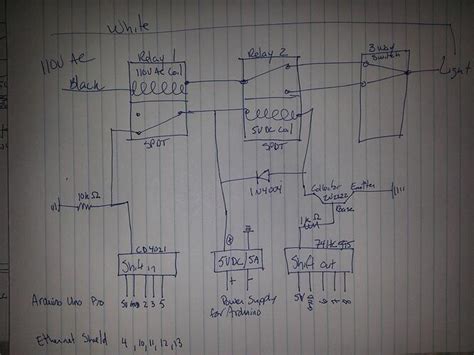 White
Relay 1
Relay 2
3 way
Switch
110V AC
110V AC Coil
Black
Light
5VDC Coil
SPDT
SPDT
1N4004
Collector
2N2222
Emitter
Base
10K Ω
1K Ω
CD4021
Shift in
5VDC
5A
74HC595
Shift out
+ -
Power Supply
for Arduino
Arduino Uno Pro
2 3 5
5V
Ethernet Shield 4, 10, 11, 12, 13